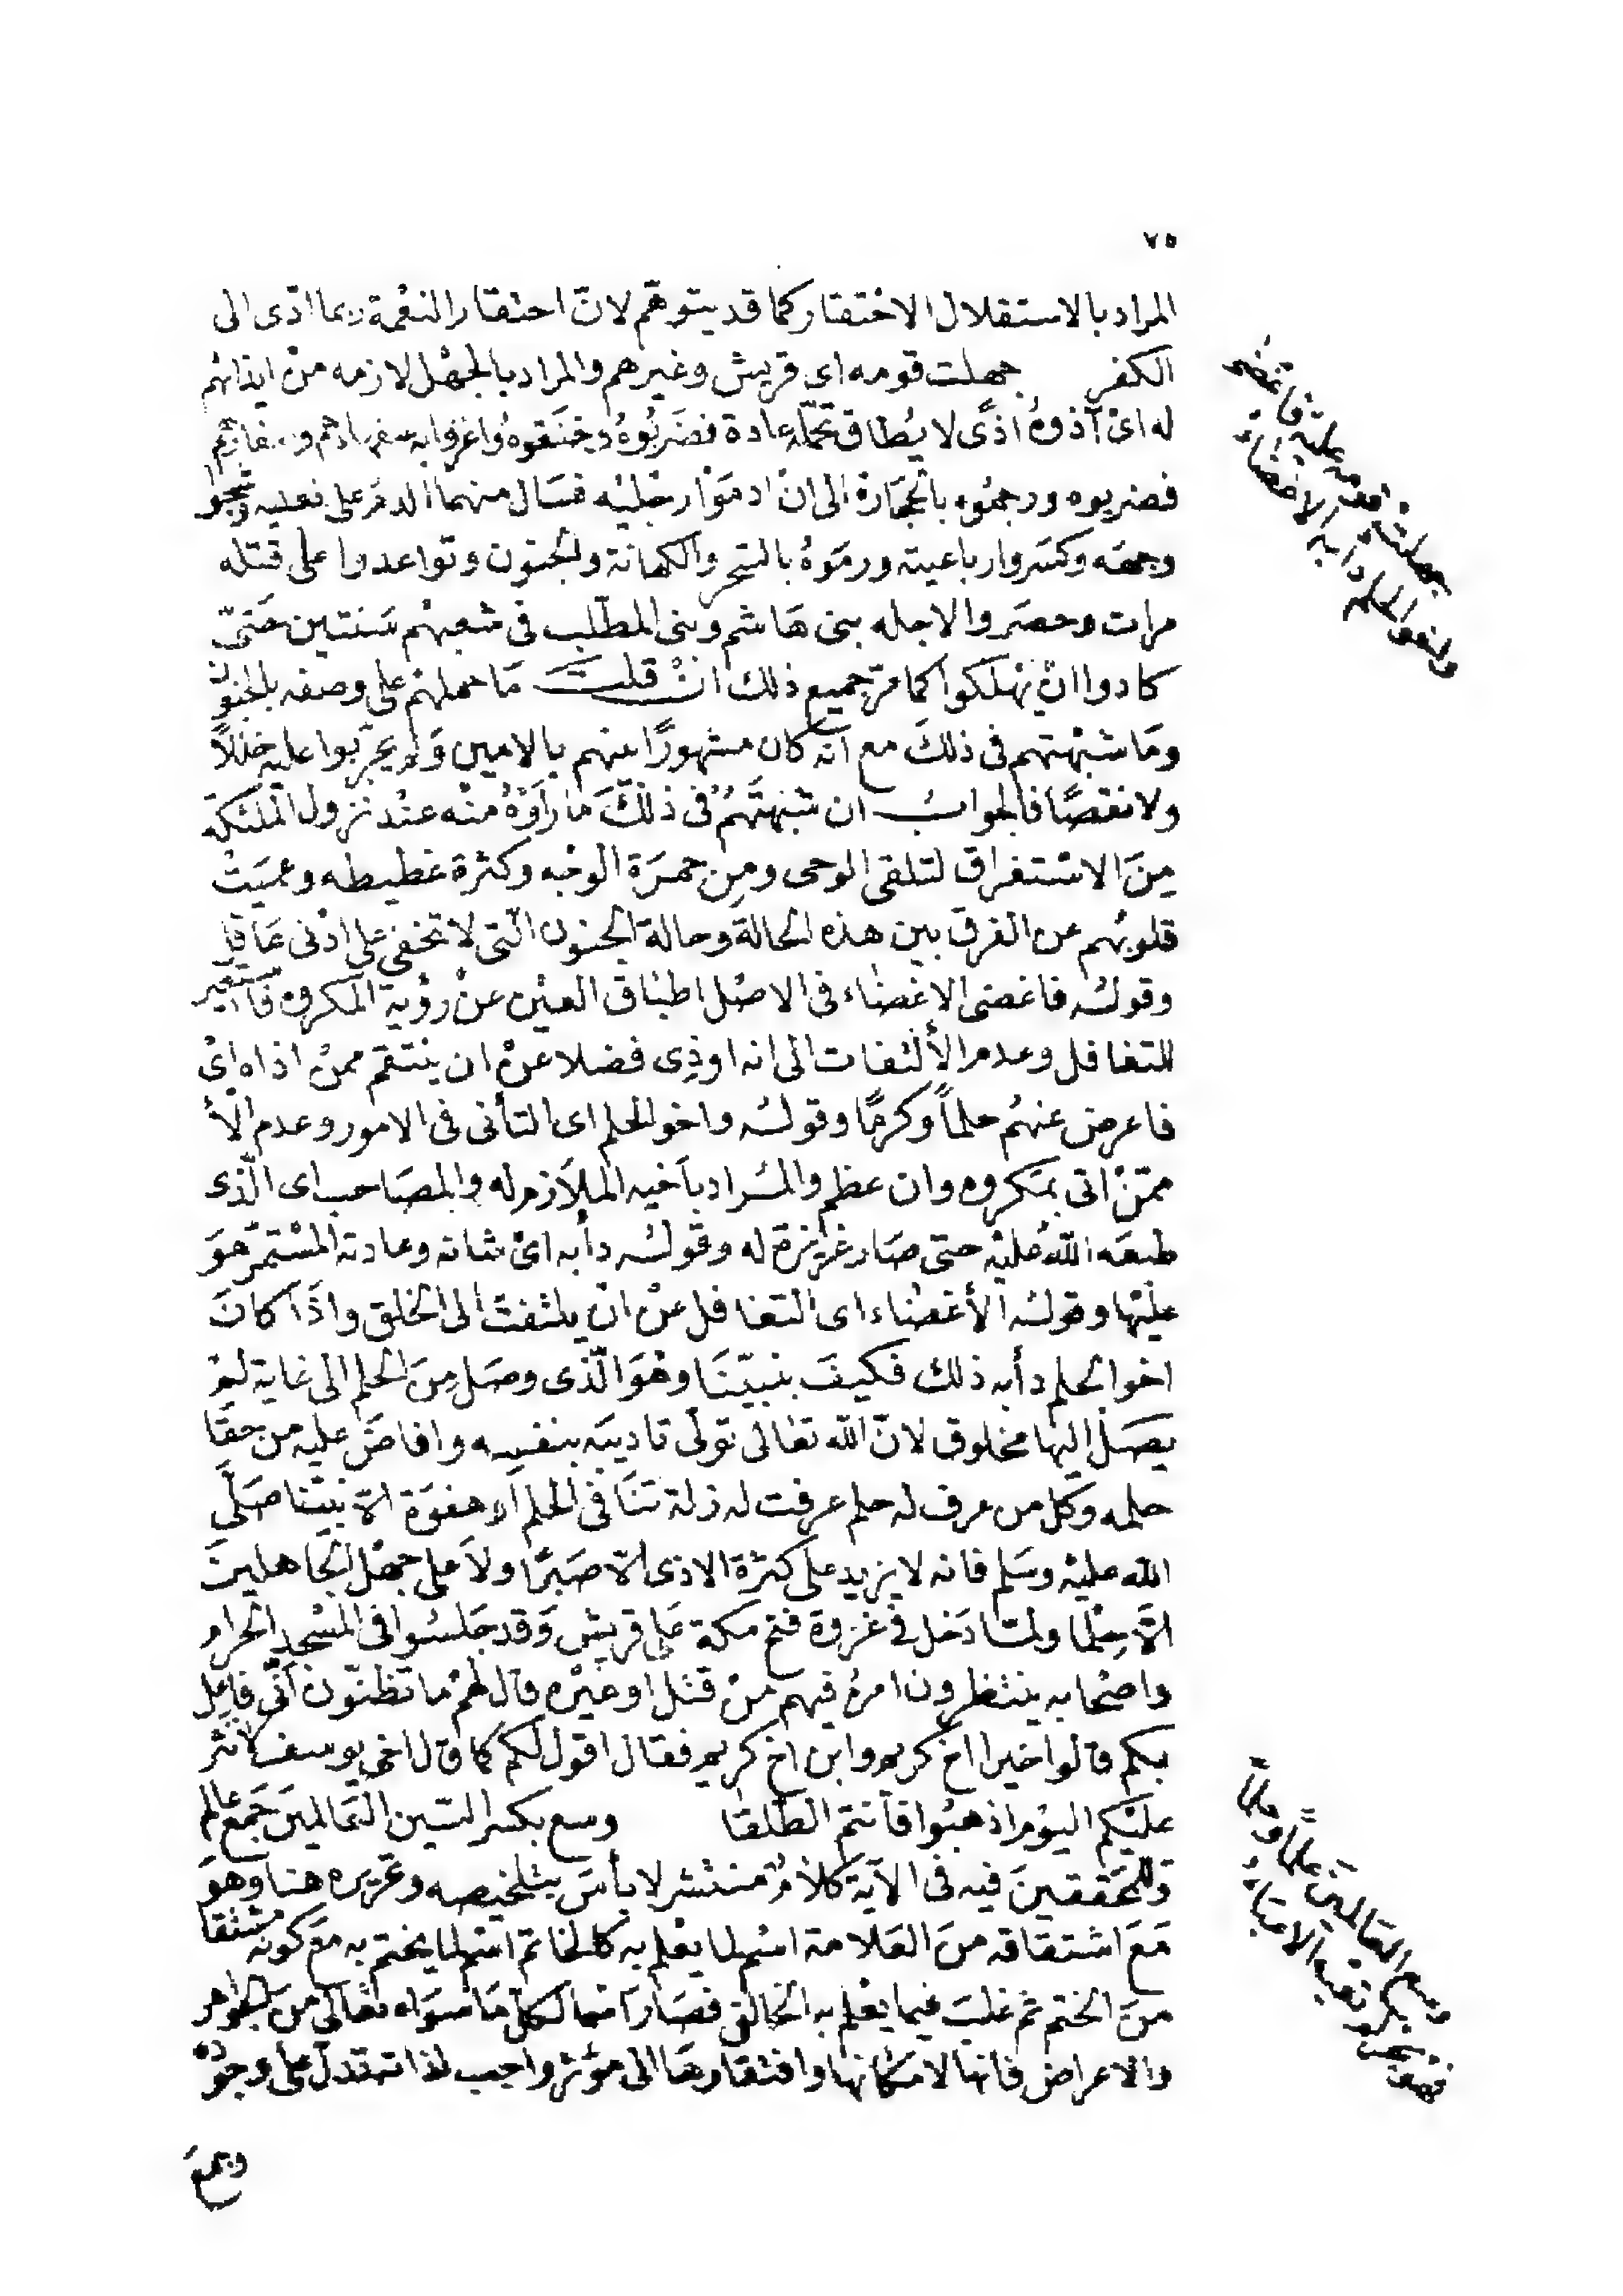 ٧٥
المراد بالاستقلال الاحتقار كما قد يتوهّم لانّ احتقار النعمة ربما ادّى الى
الكفر جهلت قومه اي قريش وغيرهم والمراد بالجهل لازمه منْ ايذائهم
له اىْ آذوهُ اذًى لا يُطاق تحمّله عادة فضَربُوهُ وخنَقوهُ واغروا به سفهاءهم و
فضربوه ورجموه بالحجارة الى انْ ادمَوْا رجْليْه فسَال منهما الدمُ على نعليه وشجوا
وجهَه وكسَروا رباعيته ورمَوهُ بالسّحر والكهانة والجنون وتواعدوا على قتله
مرات وحصَروا لاجله بنى هَاشم وبنى المطّلب فى شعبهْم سَنتين حَتىّ
كادوا انْ يهْلكوا كما مرّ جميع ذلك انْ قلت مَا حملهْم على وصفه بالجنون
ومَا شبْهتهم فى ذلكَ مع انه كان مشهورًا عنهم بالامين وَلم يجرّبوا عليه خللاً
ولا نقصًا فالجوابُ ان شبْهتَهُمْ فى ذلكَ ما رَاَوْهُ منْه عنْد نزول الملئكة
مِنَ الاسْتغراق لتلقى الوحى ومِن حمرَة الوجْه وكثرة غطيطه وعميَتْ
قلوبُهم عن الفرق بين هذه الحالة وحالة الجنون الّتى لا تخفى على ادْنى عَاقل
وقولـُه فاغضى الاغْضَاء فى الاصْل اطبَاق العيْن عنْ رؤْية المكروه فاستعير
للتغافل وعدم الألتفات الى انه اوذِى فضلا عنْ ان ينْتقم ممنْ اذاه اىْ
فاعرض عنهُم حلماً وكرمًا وقولـُه واخو الحلم اى التأنى فى الامور وعدم الأ
ممّنْ اتى بمَكروه وان عظم والمـُراد باَخيه الملاَزم له والمصَاحب اى الّذى
طبعَه اللّهُ عليْه حتى صَار غريزة له وقولـُه دأبه اىْ شانه وعادته المسْتمرّ هوَ
عليْها وقولـُه الأغضَاء اى التغافل عنْ انْ يلتفتَ الى الخلق واذَا كانَ
اخو الحلم دأبه ذلك فكيفَ بنبيّنَا وهوَ الّذى وصَل مِنَ الحلم الى غاية لمْ
يصَلْ اليها مخلوق لانّ اللّه تعَالى تولّى تاديبَه بنفسِه وافاضَ عليه من حقَا
حلمه وكل من عرف له حلم عرفت له زلة تنَافى الحلم اَو هفوَة الاّ نبيّنا صَلّى
اللّه عليْه وسَلم فانه لا يزيد على كثرة الاذى الاّ صَبرًا ولاَ على جهْل الجَاهلينَ
الاَّ حِلْما ولمَّا دَخل فى غزوة فتح مكة عَلى قريش وَقد جَلسُوا فى المسْجد الحرام
واصْحابه ينتظرون امرهُ فيهم منْ قتْل او غيْره قال لهمْ ما تظنّون اَنّى فاعِل
بكم قالوا خيرا اخ كريم وابن اخ كريم فقال اقول لكم كما قال اخى يوسف لا تثر
عليْكم اليوْم اذهبُوا فاَنتم الطّلقا وسع بكسر السّين العَالمينَ جَمْع عالم
وَللمحققينَ فيه فى الآية كلاَمٌ منتشر لا بأسَ بتلخيصه وتحريره هنا وهوَ
مَعَ اشتقاقه منَ العَلامة اسْم لما يعْلم به كالخاتم اسْم لما يختم به مَع كونه مشتقا
منَ الختم ثم غلبَ فيما يعْلم به الخالق فصَار اسْما لكل مَا سوَاه تعَالى منَ الجواهر
والاعراض فانها لامكانها وافتقارهَا الى مؤثر واجب لذاته تدلّ على وجوْده
وجمعَ
جهلتْ قومه عليه فاَغضى
واخو الحلم دابه الاغضاءُ
وسع العَالمينَ علماً وحلماً
فهوَ بحرٌ لم تعْيه الاعباءُ